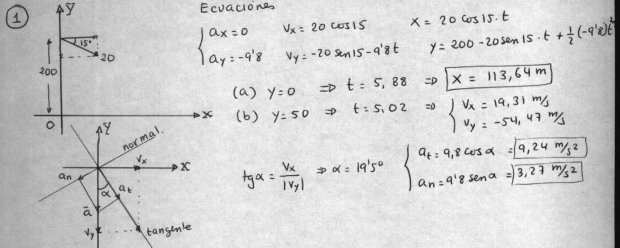 1
Y
15°
20
200
O
X
Ecuaciones
ax = 0 Vx = 20 cos15 X = 20 cos15 . t
ay = -9'8 Vy = -20 sen15 - 9'8t Y = 200 - 20 sen15 . t + 1/2 (-9'8) t²
(a) Y = 0 ⇒ t = 5,88 ⇒ X = 113,64 m
(b) Y = 50 ⇒ t = 5,02 ⇒ Vx = 19,31 m/s
Vy = -54,47 m/s
Y
normal.
Vx
X
an
α
at
a
Vy
tangente
tgα = Vx/|Vy| ⇒ α = 19'5°
at = 9,8 cosα = 9,24 m/s2
an = 9'8 senα = 3,27 m/s2